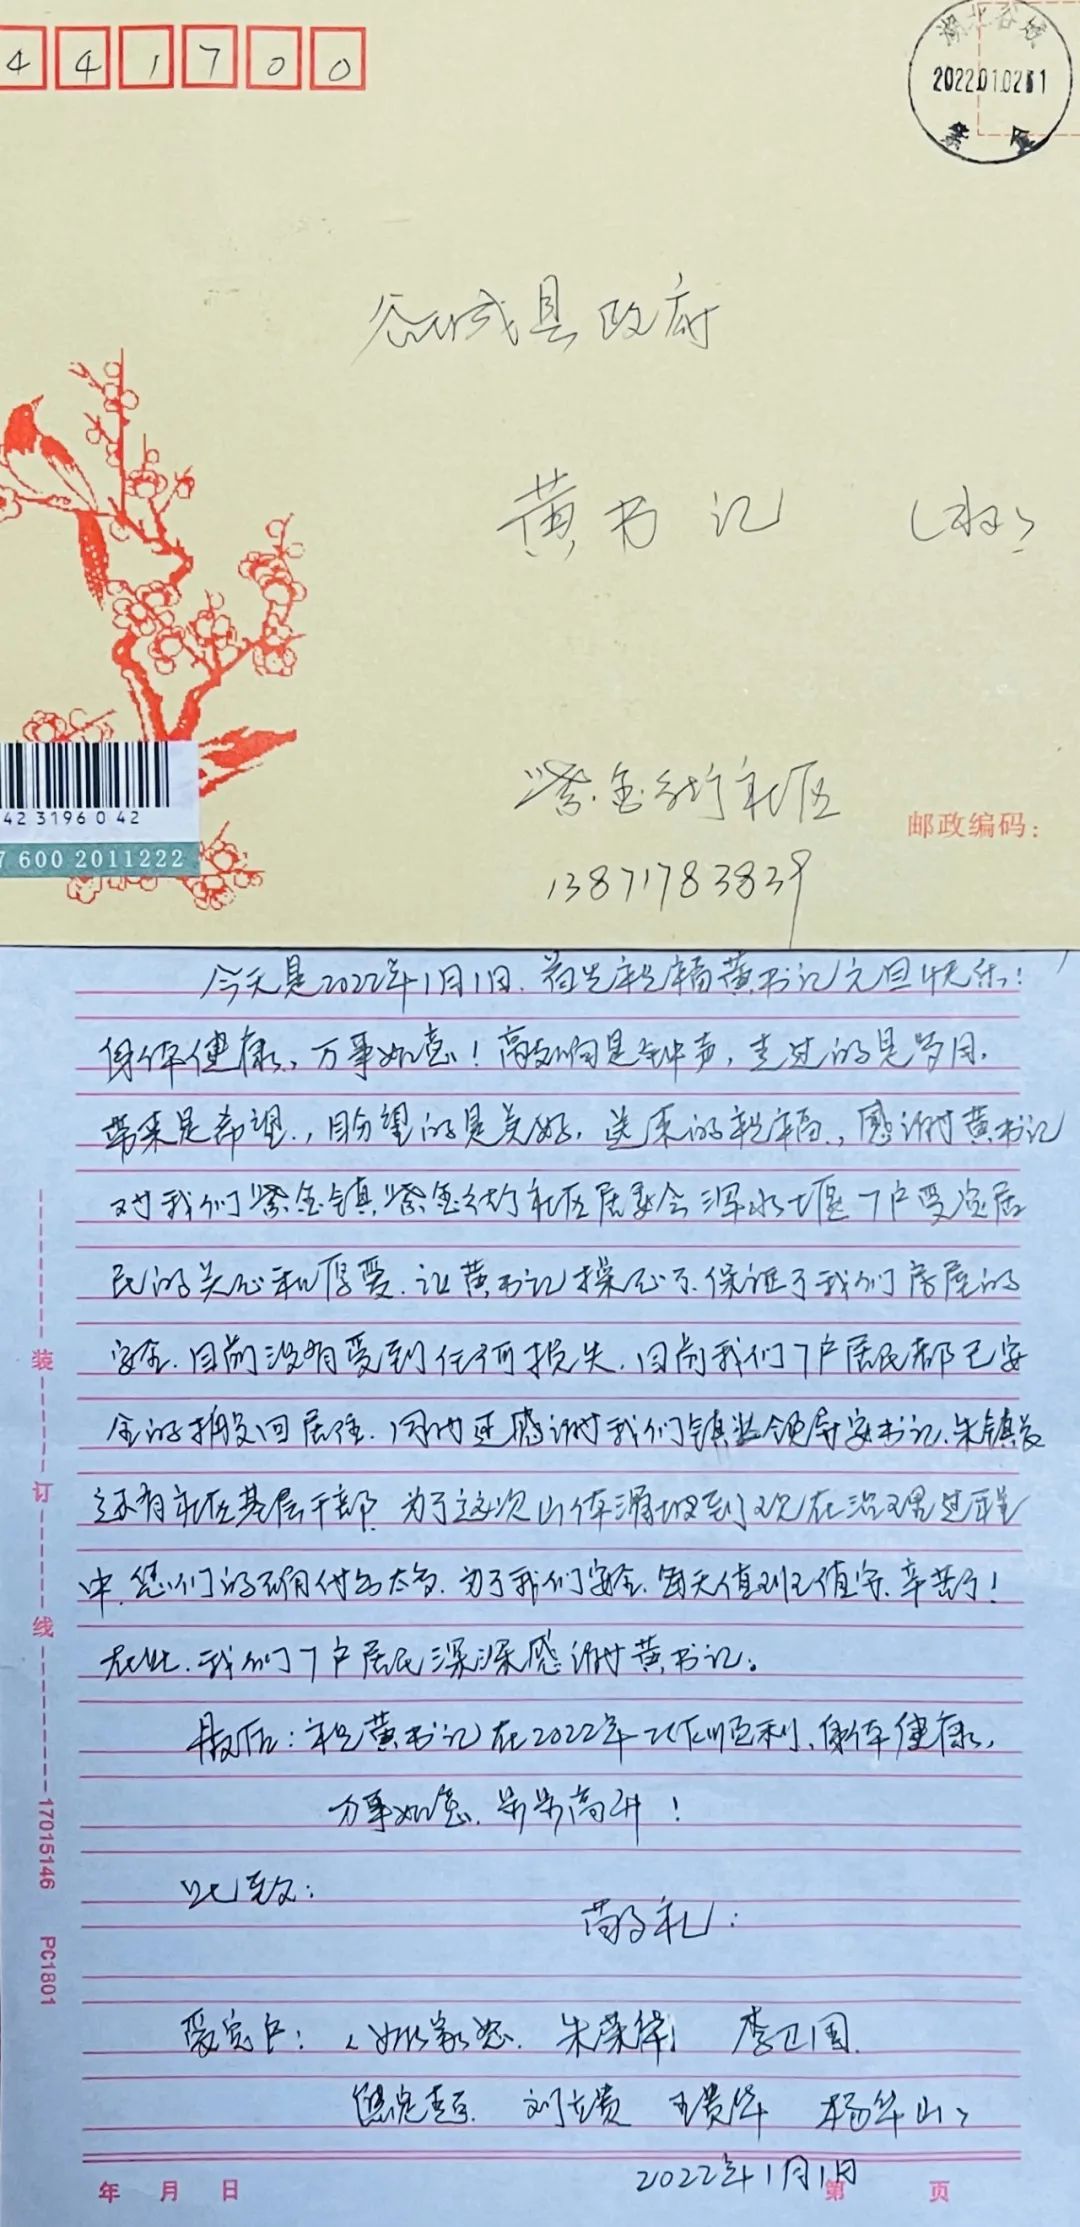 441700
湖北谷城
2022.01.02
紫金
谷城县政府
黄书记
(收)
紫金街社区
邮政编码：
13871783839
42 3196 0 42
7 600 2011222
今天是2022年1月1日.首先祝福黄书记元旦快乐!
身体健康、万事如意!高敲响是钟声,走过的是岁月.
带来是希望、,盼望的是美好,送来的祝福、,感谢黄书记
对我们紫金镇紫金街社区居委会浑水堰7户受灾居
民的关心和厚爱.让黄书记操心了.保证了我们房屋的
安全.目前没有受到任何损失.目前我们7户居民都已安
全的搬回居住.同时还感谢我们镇党领导安书记、朱镇长
还有社区基层干部.为了这次山体滑坡到现在治理过程
中.您们的付出太多.为了我们安全.每天值班值守.辛苦了!
在此.我们7户居民深深感谢黄书记。
最后:祝黄书记在2022年工作顺利、身体健康,
万事如意.步步高升!
此致:
敬礼:
受灾户: 朱荣华 李卫国
刘立贵 王贵华 杨华山
2022年1月1日
年 月 日 第 页
装
订
线
17015146 PC1801